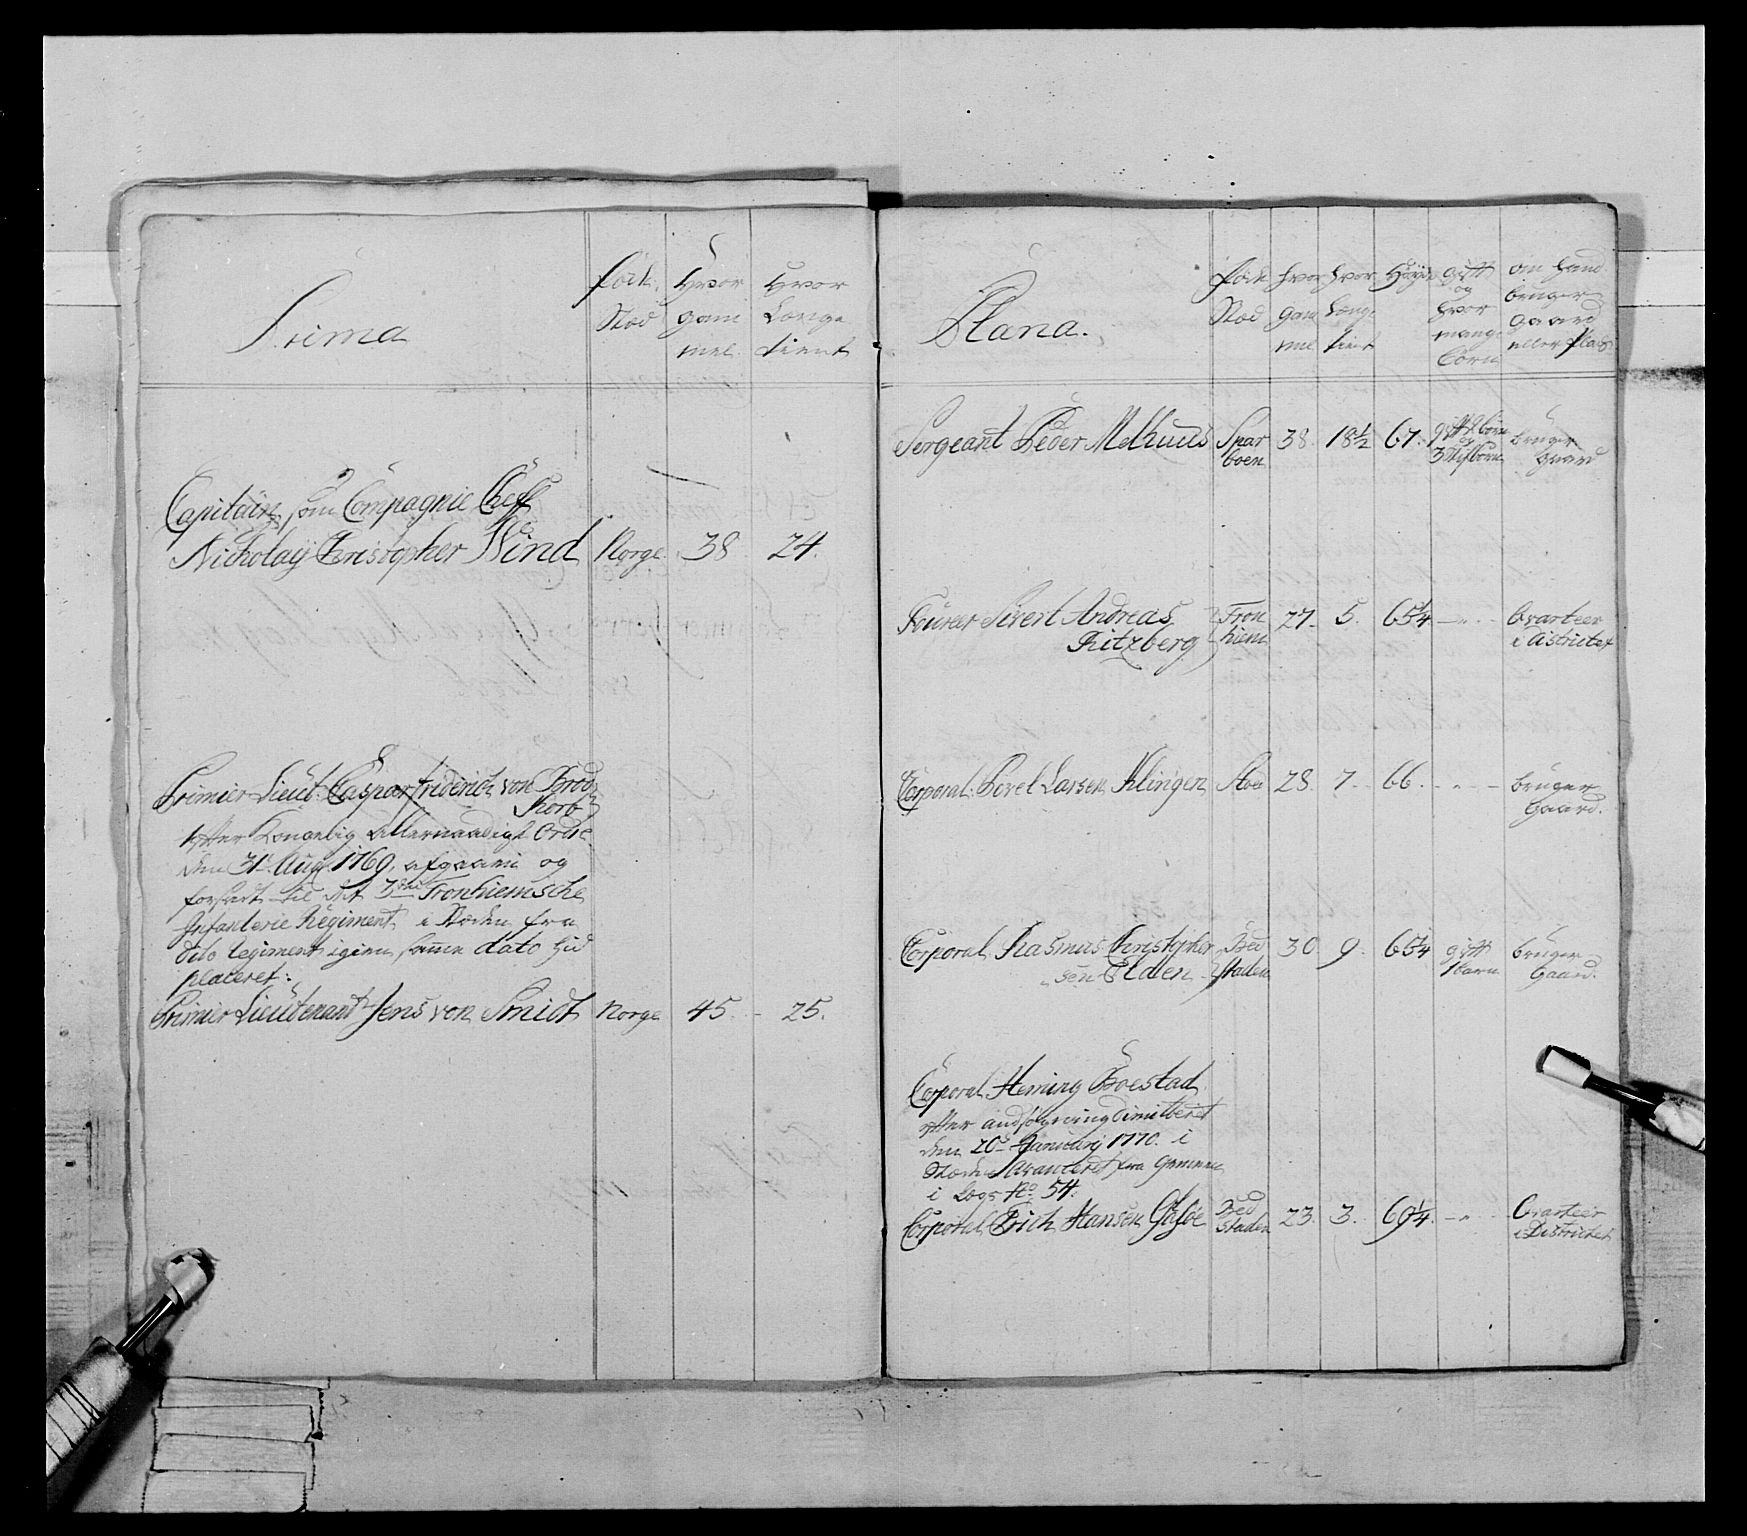 Prima
Føde
Stæd
Hvor
gam
mel.
Hvor
Længe
tient
Capitain, som Compagnie Cheff
Nicholay Christopher Wind Norge 38 24.
Premier Lieut: Caspar Friderich von Brod
Korb
Efter Kongelig allernaadigst Ordre
den 31t Aug 1769, afgaaen og
forsadt til det 3die Tronhiemsche
Infanterie Regiment, i Stæden fra
dito Regiment igien samme dato hid
placeret:
Primier Lieutenant Jens von Smidt Norge 45. - 25.
Plana.
Føde
Stæd
hvor
gam
mel
hvor
Længe
tient
Høyde
gift
og
hvor
mange
børn
om hand
bruger
gaard
eller Plads
Sergeant Peder Melhuus Spar
boen 38. 18½ 67. gift børn
og
3 Stifbørn bruger
Gaard
Fourer Sivert Andreas
Ritzberg Tron
hiem 27. 5. 65¼ - " - Qvarteer
i Districtet
Corporal: Povel Larsen Klingen Stoe 28. 7. 66. - " - bruger
Gaard.
Corporal, Rasmus Christopher
sen Elden Bed
staden 30 9. 65¼ gift
1 barn bruger
Gaard.
Corporal, Heming Boestad
efter andsøgning dimitteret
den 20de Januarij 1770. i
Stæden Avanceret fra Gemeene
i Lægs No 54.
Corporal Erich Hansen Bed
staden 23. 3. 69¼. - " - Qvarteer
i Districtet